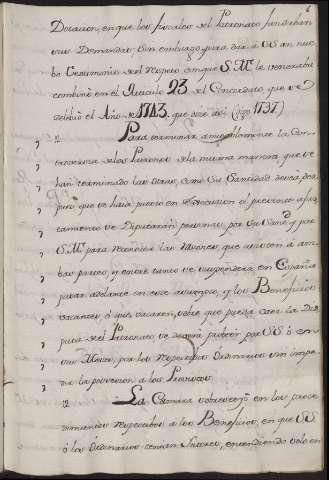 Dotacion, en que los fiscales del Patronato fundaban
sus Demandas; Sin embargo para dar a SS. un nue-
bo testimonio del respeto con que S.M. le veneraba
combino en el Articulo 23 del Concordato, que se
celebró el Año de 1743. que dice asi (digo 1737.)
Para terminar amigablemente la Con-
troversia de los Patronos de la misma manera que se
han terminado las otras, como Su Santidad desea, des-
pues que se haia puesto en execucion el presente ajus-
tamiento se Diputarán personas, por Su Santd. y por
S.M. para reconocer las razones, que asisten a am-
bas partes; y entre tanto se suspenderá en España
pasar adelante en este asumpto, y los Beneficios
vacantes, ó que vacaren, sobre que pueda caer la Dis-
puta del Patronato se deberán proveer por SS. ó en
sus Meses, por los respectivos Ordinarios sin impe-
dir la posesion a los Provistos.
La Camara sobreseyó en los proce-
dimientos respectivos a los Beneficios, en que SS.
ó los Ordinarios tenian Interes, entendiendo solo en